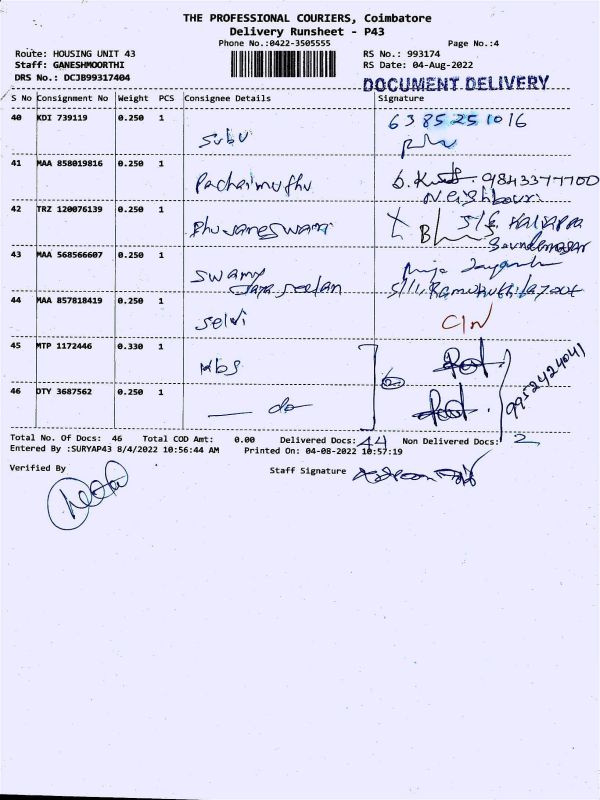 THE PROFESSIONAL COURIERS, Coimbatore
Delivery Runsheet - P43
Phone No.:0422-3505555
Page No.:4
Route: HOUSING UNIT 43
RS No.: 993174
Staff: GANESHMOORTHI
RS Date: 04-Aug-2022
DRS No.: DCJB99317404
DOCUMENT DELIVERY
S No Consignment No Weight PCS Consignee Details Signature
40 KDI 739119 0.250 1 Subu 6385251016
41 MAA 858019816 0.250 1 Pachaimuthu 9843377700
Neighbour
42 TRZ 120076139 0.250 1 Bhuvaneswari
43 MAA 568566607 0.250 1 Swamy
Jaya Seelan
44 MAA 857818419 0.250 1 Selvi C/N
45 MTP 1172446 0.330 1 Kbs
46 DTY 3687562 0.250 1 — do 9952424041
Total No. Of Docs: 46 Total COD Amt: 0.00 Delivered Docs: 44 Non Delivered Docs: 2
Entered By :SURYAP43 8/4/2022 10:56:44 AM Printed On: 04-08-2022 10:57:19
Verified By Staff Signature